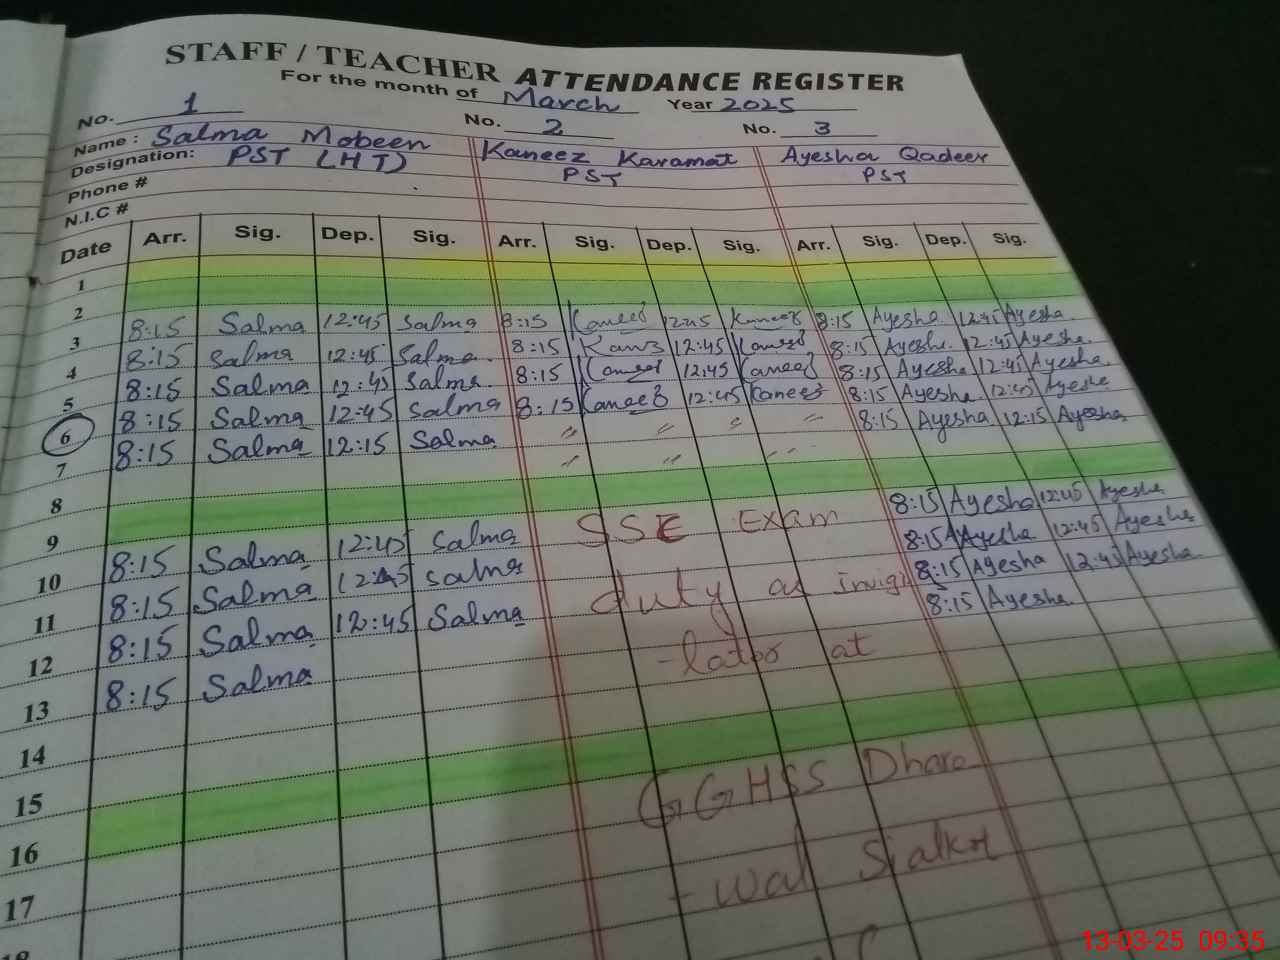 STAFF / TEACHER ATTENDANCE REGISTER
For the month of March Year 2025
No. 1 No. 2 No. 3
Name : Salma Mobeen Kaneez Karamat Ayesha Qadeer
Designation: PST (HT) PST PST
Phone #
N.I.C #
Date Arr. Sig. Dep. Sig. Arr. Sig. Dep. Sig. Arr. Sig. Dep. Sig.
1
2
3 8:15 Salma 12:45 Salma 8:15 Kaneez 12:45 Kaneez 8:15 Ayesha 12:45 Ayesha
4 8:15 Salma 12:45 Salma 8:15 12:45 8:15 Ayesha 12:45 Ayesha
5 8:15 Salma 12:45 Salma 8:15 Kaneez 12:45 Kaneez 8:15 Ayesha 12:45 Ayesha
6 8:15 Salma 12:45 Salma 8:15 Kaneez 12:45 Kaneez 8:15 Ayesha 12:45 Ayesha
7 8:15 Salma 12:15 Salma " " " " 8:15 Ayesha 12:15 Ayesha
8 " " " "
9
10 8:15 Salma 12:45 Salma SSE Exam 8:15 Ayesha 12:45 Ayesha
11 8:15 Salma 12:45 Salma duty as invigi 8:15 Ayesha 12:45 Ayesha
12 8:15 Salma 12:45 Salma -lator at 8:15 Ayesha 12:45 Ayesha
13 8:15 Salma 8:15 Ayesha
14
15 GGHSS Dharo
16 -wal Sialkot
17
18
13-03-25 09:35